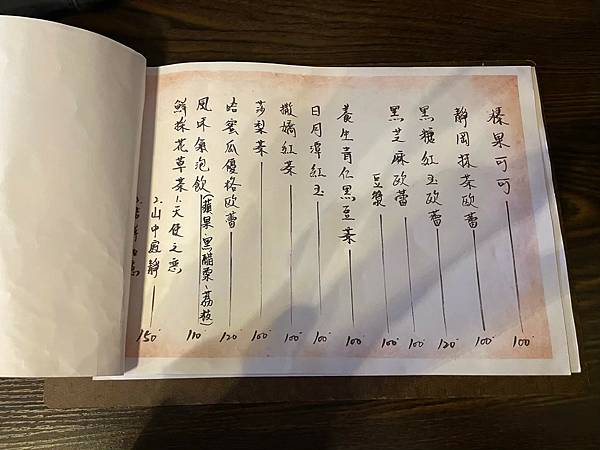 榛果可可 100.
靜岡抹茶歐蕾 100.
黑糖紅玉歐蕾 120.
黑芝麻歐蕾 100.
豆漿 100.
養生青仁黑豆茶 100.
日月潭紅玉 100.
撒嬌紅茶 100.
莎梨茶 100.
哈蜜瓜優格歐蕾 120.
風味氣泡飲(蘋果、黑醋栗、荔枝) 110.
鮮採花草茶 1.天使之戀
2.山中寂靜 150.